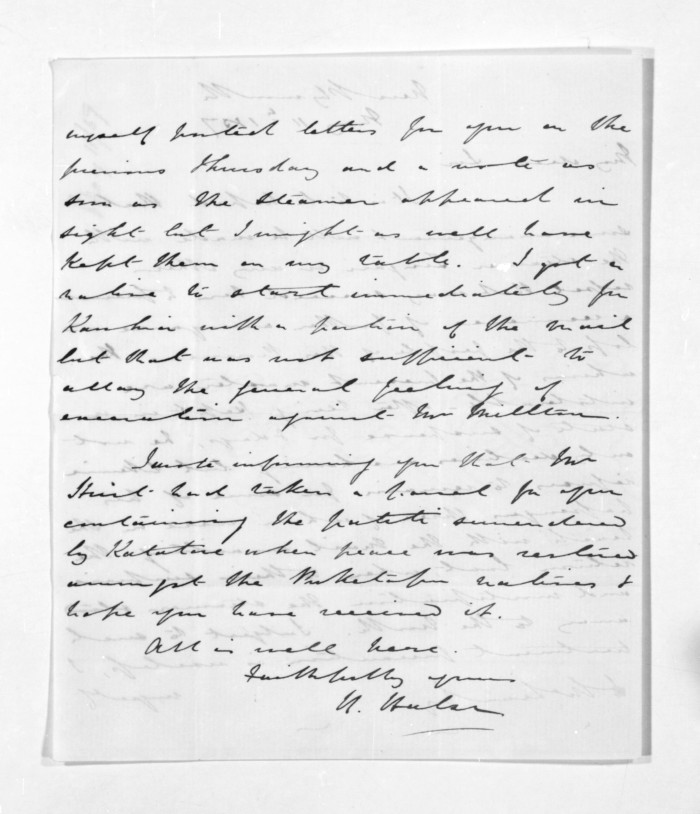 myself posted letters for you on the
previous Thursday and a note as
soon as the steamer appeared in
sight but I might as well have
kept them on my table. I got a
native to start immediately for
Kawhia with a portion of the mail
but that was not sufficient to
allay the general feeling of
execration against Mr
I wrote informing you that Mr
had taken a parcel for you
containing the patiti surrendered
by Katatore when peace was restored
amongst the Puketapu natives &
hope you have received it.
All is well here.
Faithfully yours
H. Halse